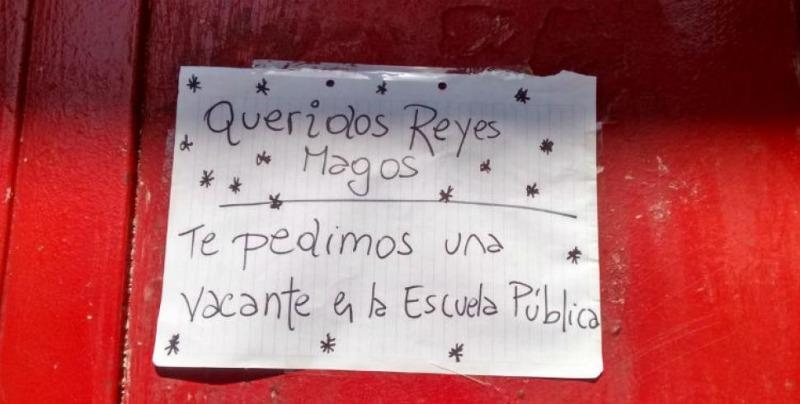 Queridos Reyes
Magos
Te pedimos una
vacante en la Escuela Pública